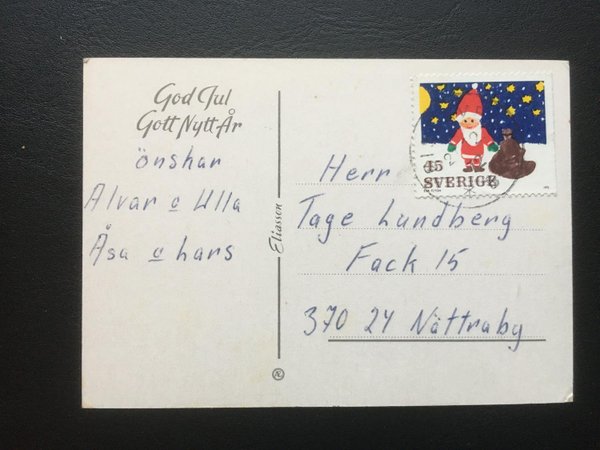 God Jul
Gott Nytt År
önskar
Alvar o Ulla
Åsa o Lars
Eliasson
45
SVERIGE
Herr
Tage Lundberg
Fack 15
370 24 Nättraby